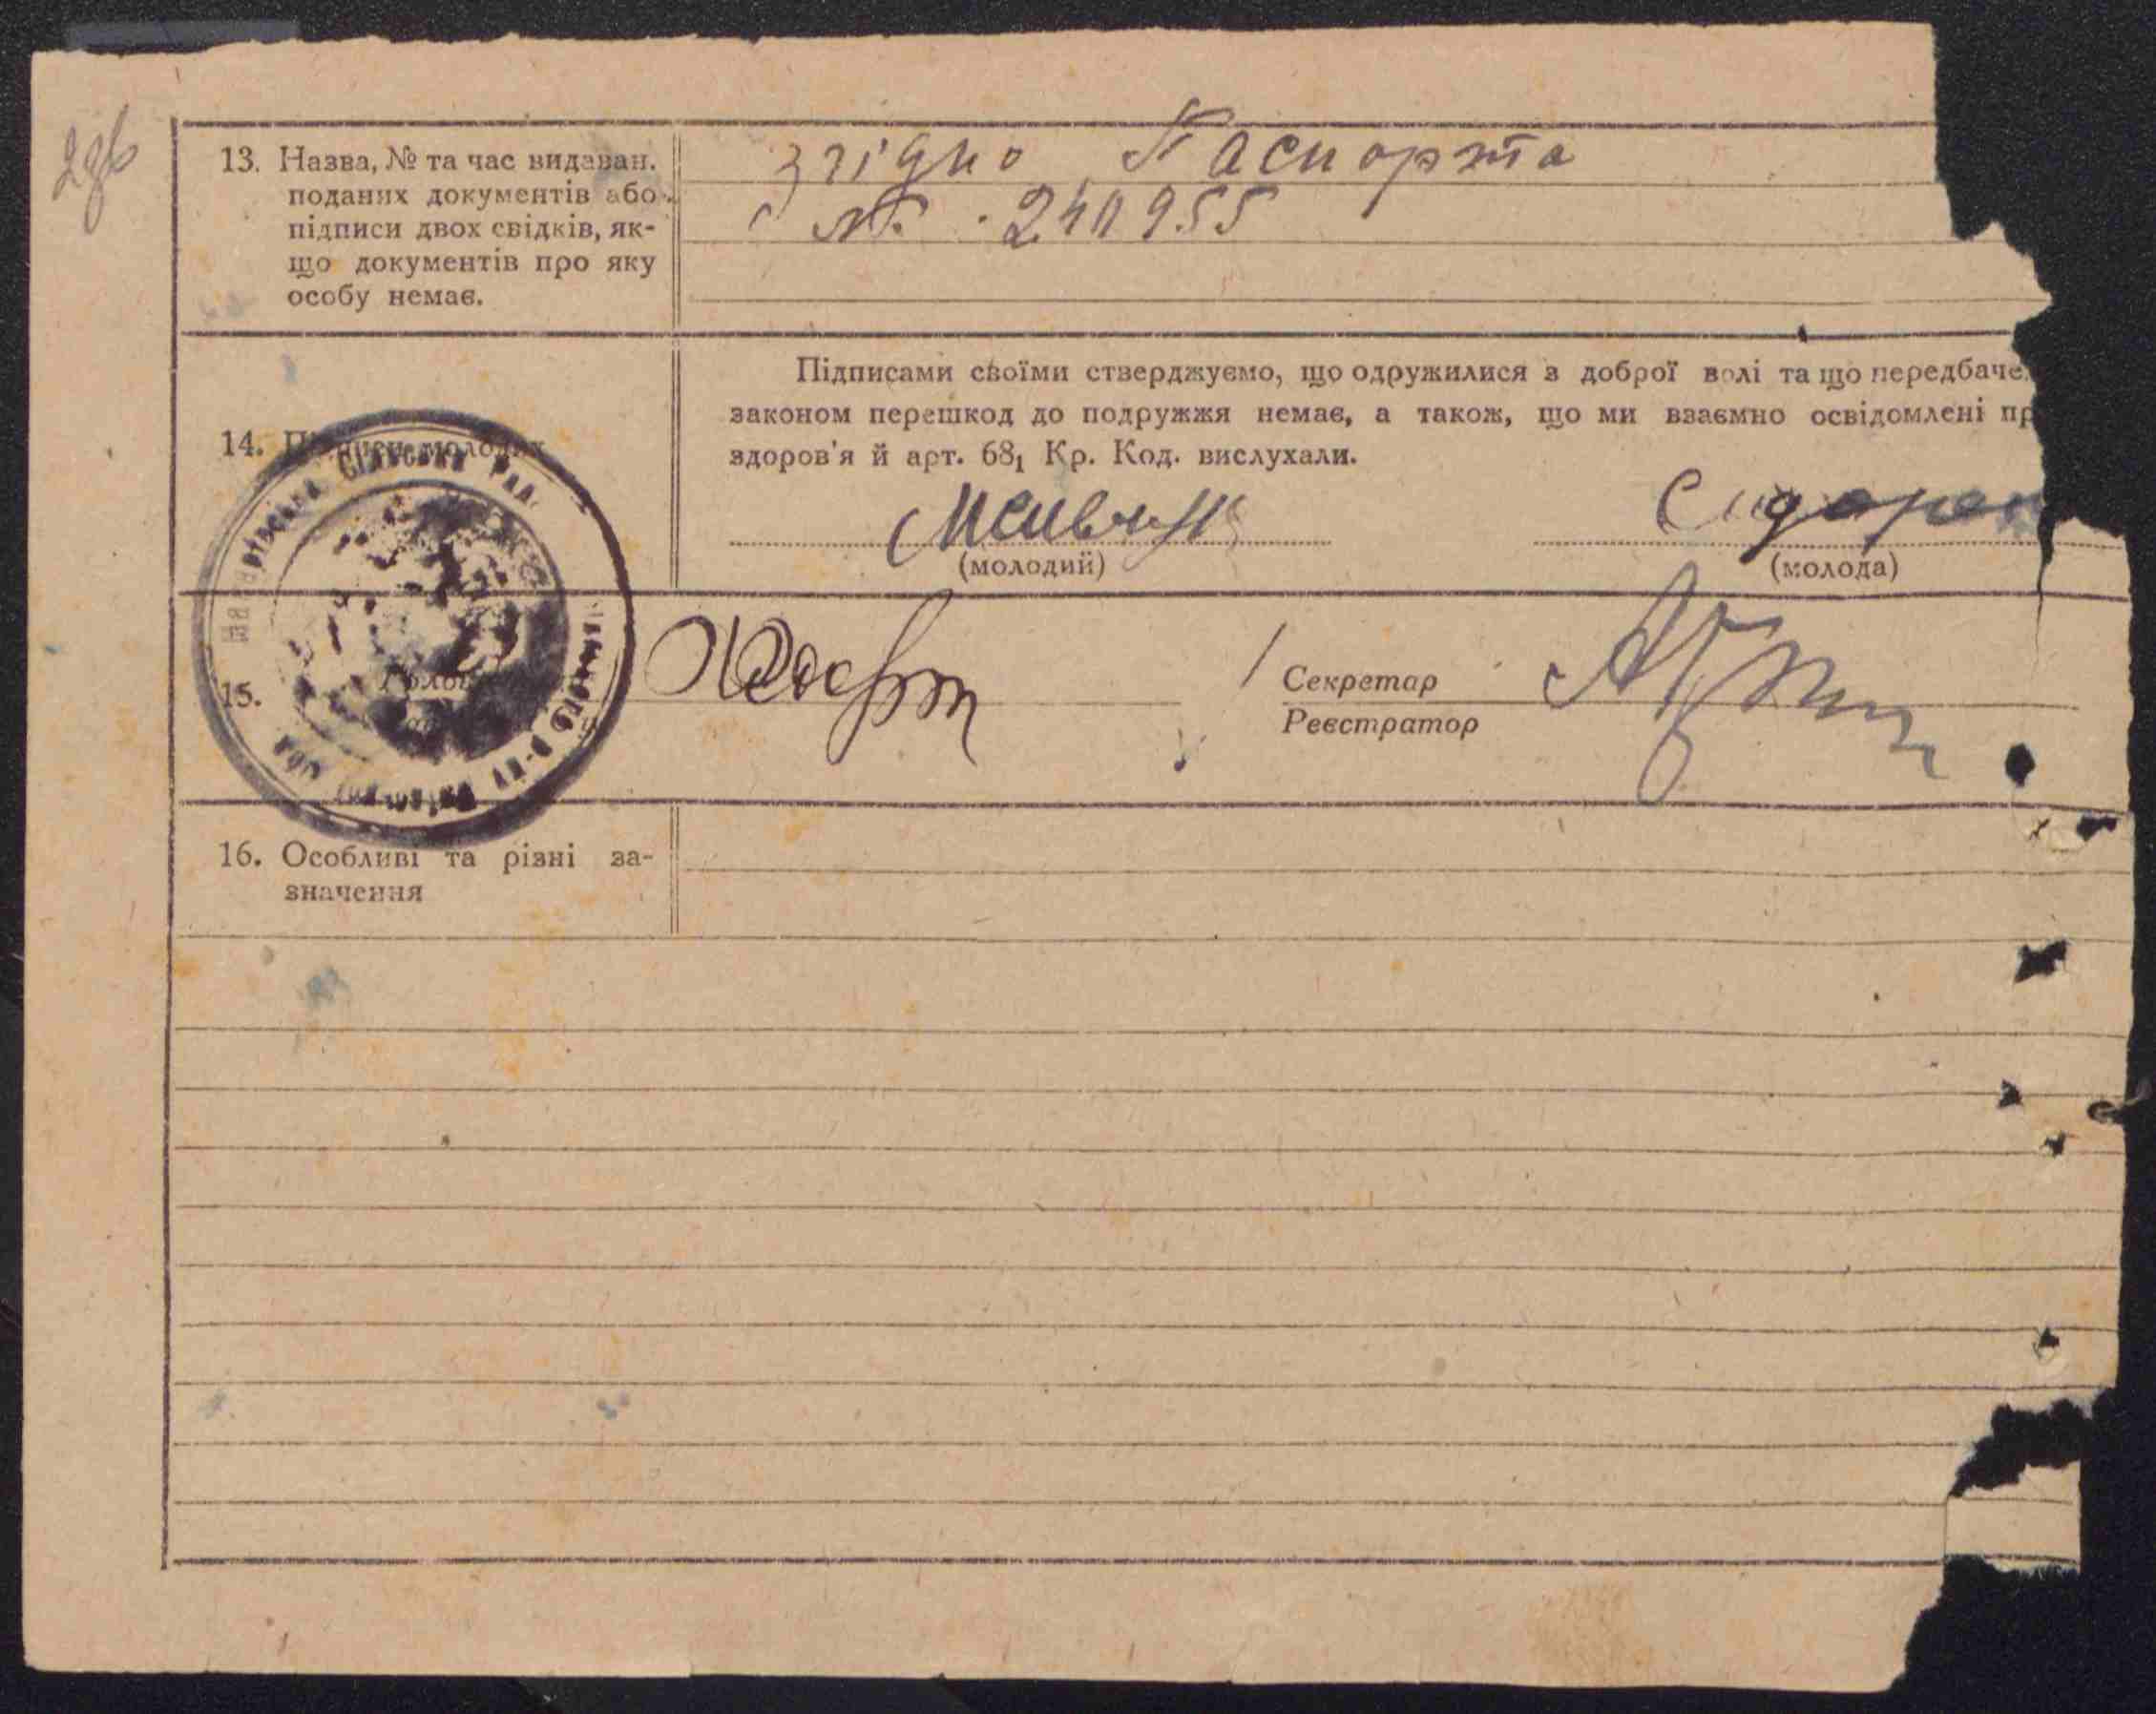 13. Назва, № та час видаван.
поданих документів або
підписи двох свідків, як-
що документів про яку
особу немає.
згідно Паспорта
№ 240955
14. Підписи молодих
Підписами своїми стверджуємо, що одружилися з доброї волі та що передбаче
законом перешкод до подружжя немає, а також, що ми взаємно освідомлені пр
здоров'я й арт. 68₁ Кр. Код. вислухали.
Сидорен
(молодий)
(молода)
15.
Секретар
Реєстратор
Сільська Рада
16. Особливі та різні за-
значення